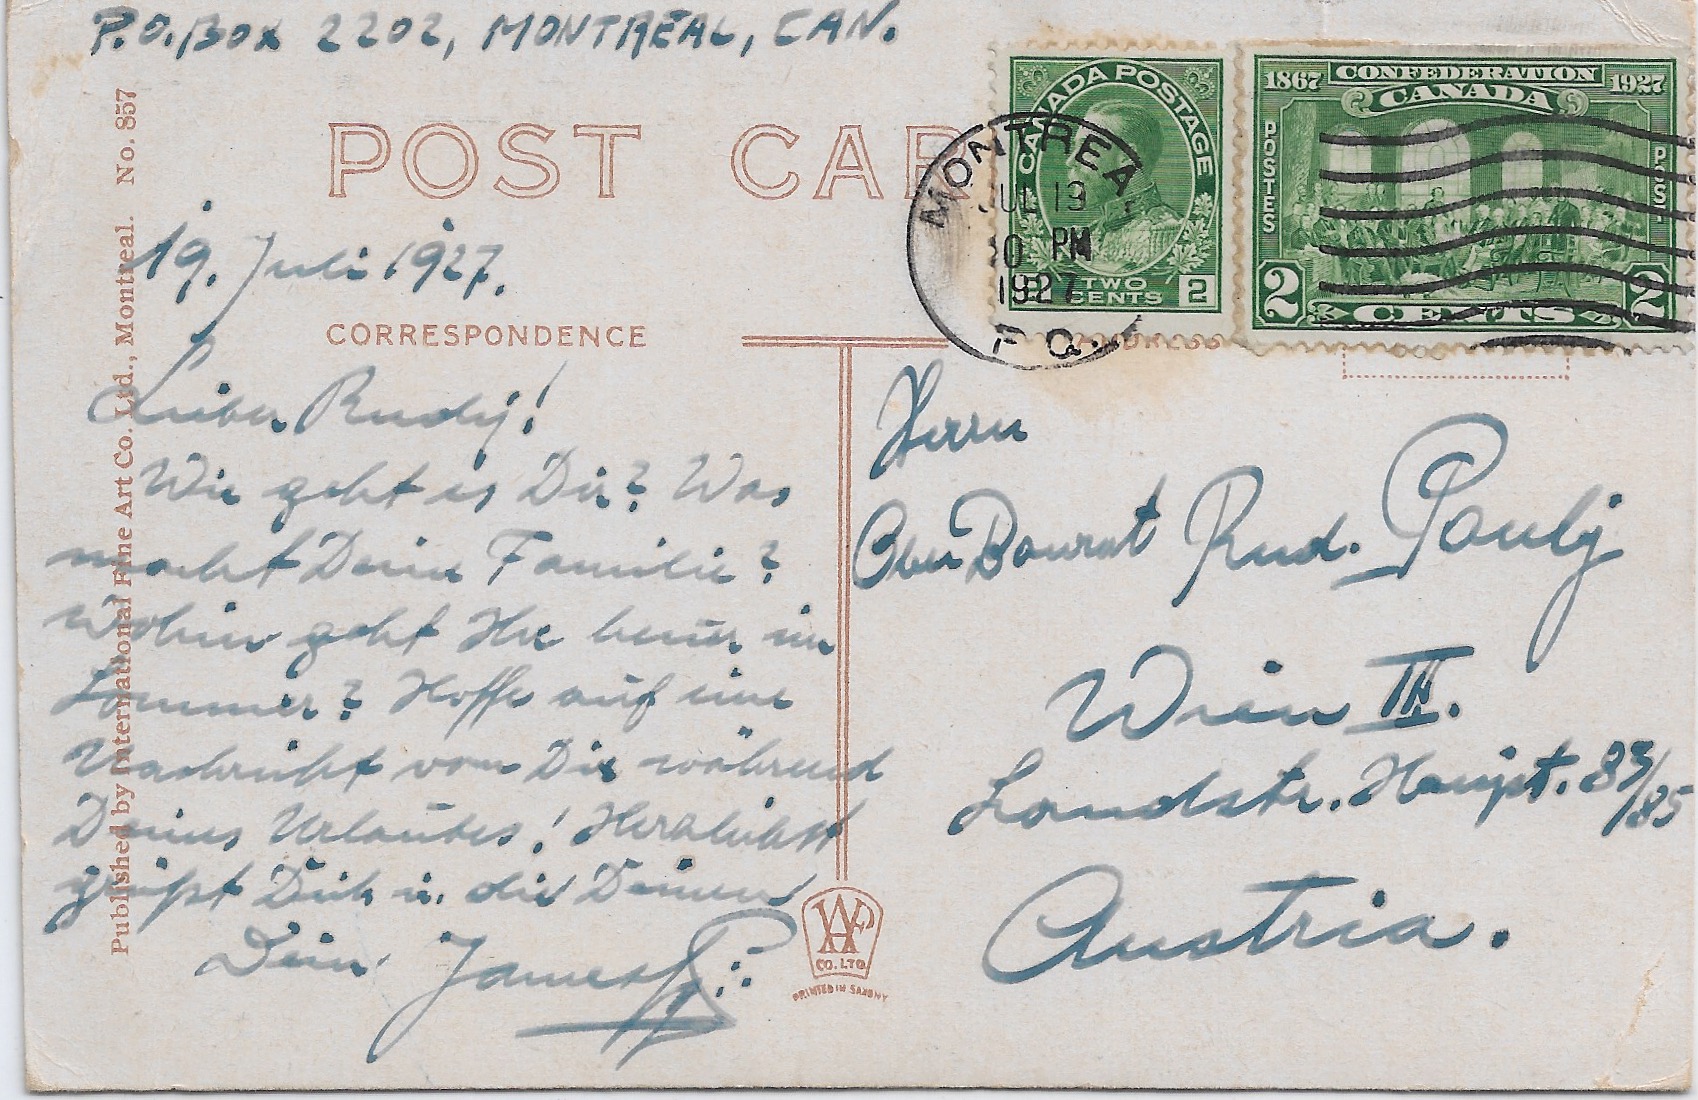 P.O. Box 2202, MONTREAL, CAN.
POST CAR
CANADA POSTAGE
TWO
CENTS 2
1867 CONFEDERATION 1927
CANADA
POSTES
POST
2 CENTS 2
MONTREA
JUL 19
10 PM
1927
P.Q.
19. Juli 1927.
CORRESPONDENCE
Lieber Rudy!
Wie geht es Dir? Was
macht Deine Familie?
Wohin geht Ihr heuer im
Sommer? Hoffe auf eine
Nachricht von Dir während
Deines Urlaubes! Herzlichst
grüßt Dich u. die Deinen
Dein
Herrn
Ober Baurat Rud. Pauly
Wien III.
Landstr. Hauptst. 83/85
Austria.
Published by International Fine Art Co. Ltd., Montreal. No. 857
CO. LTD.
PRINTED IN SAXONY